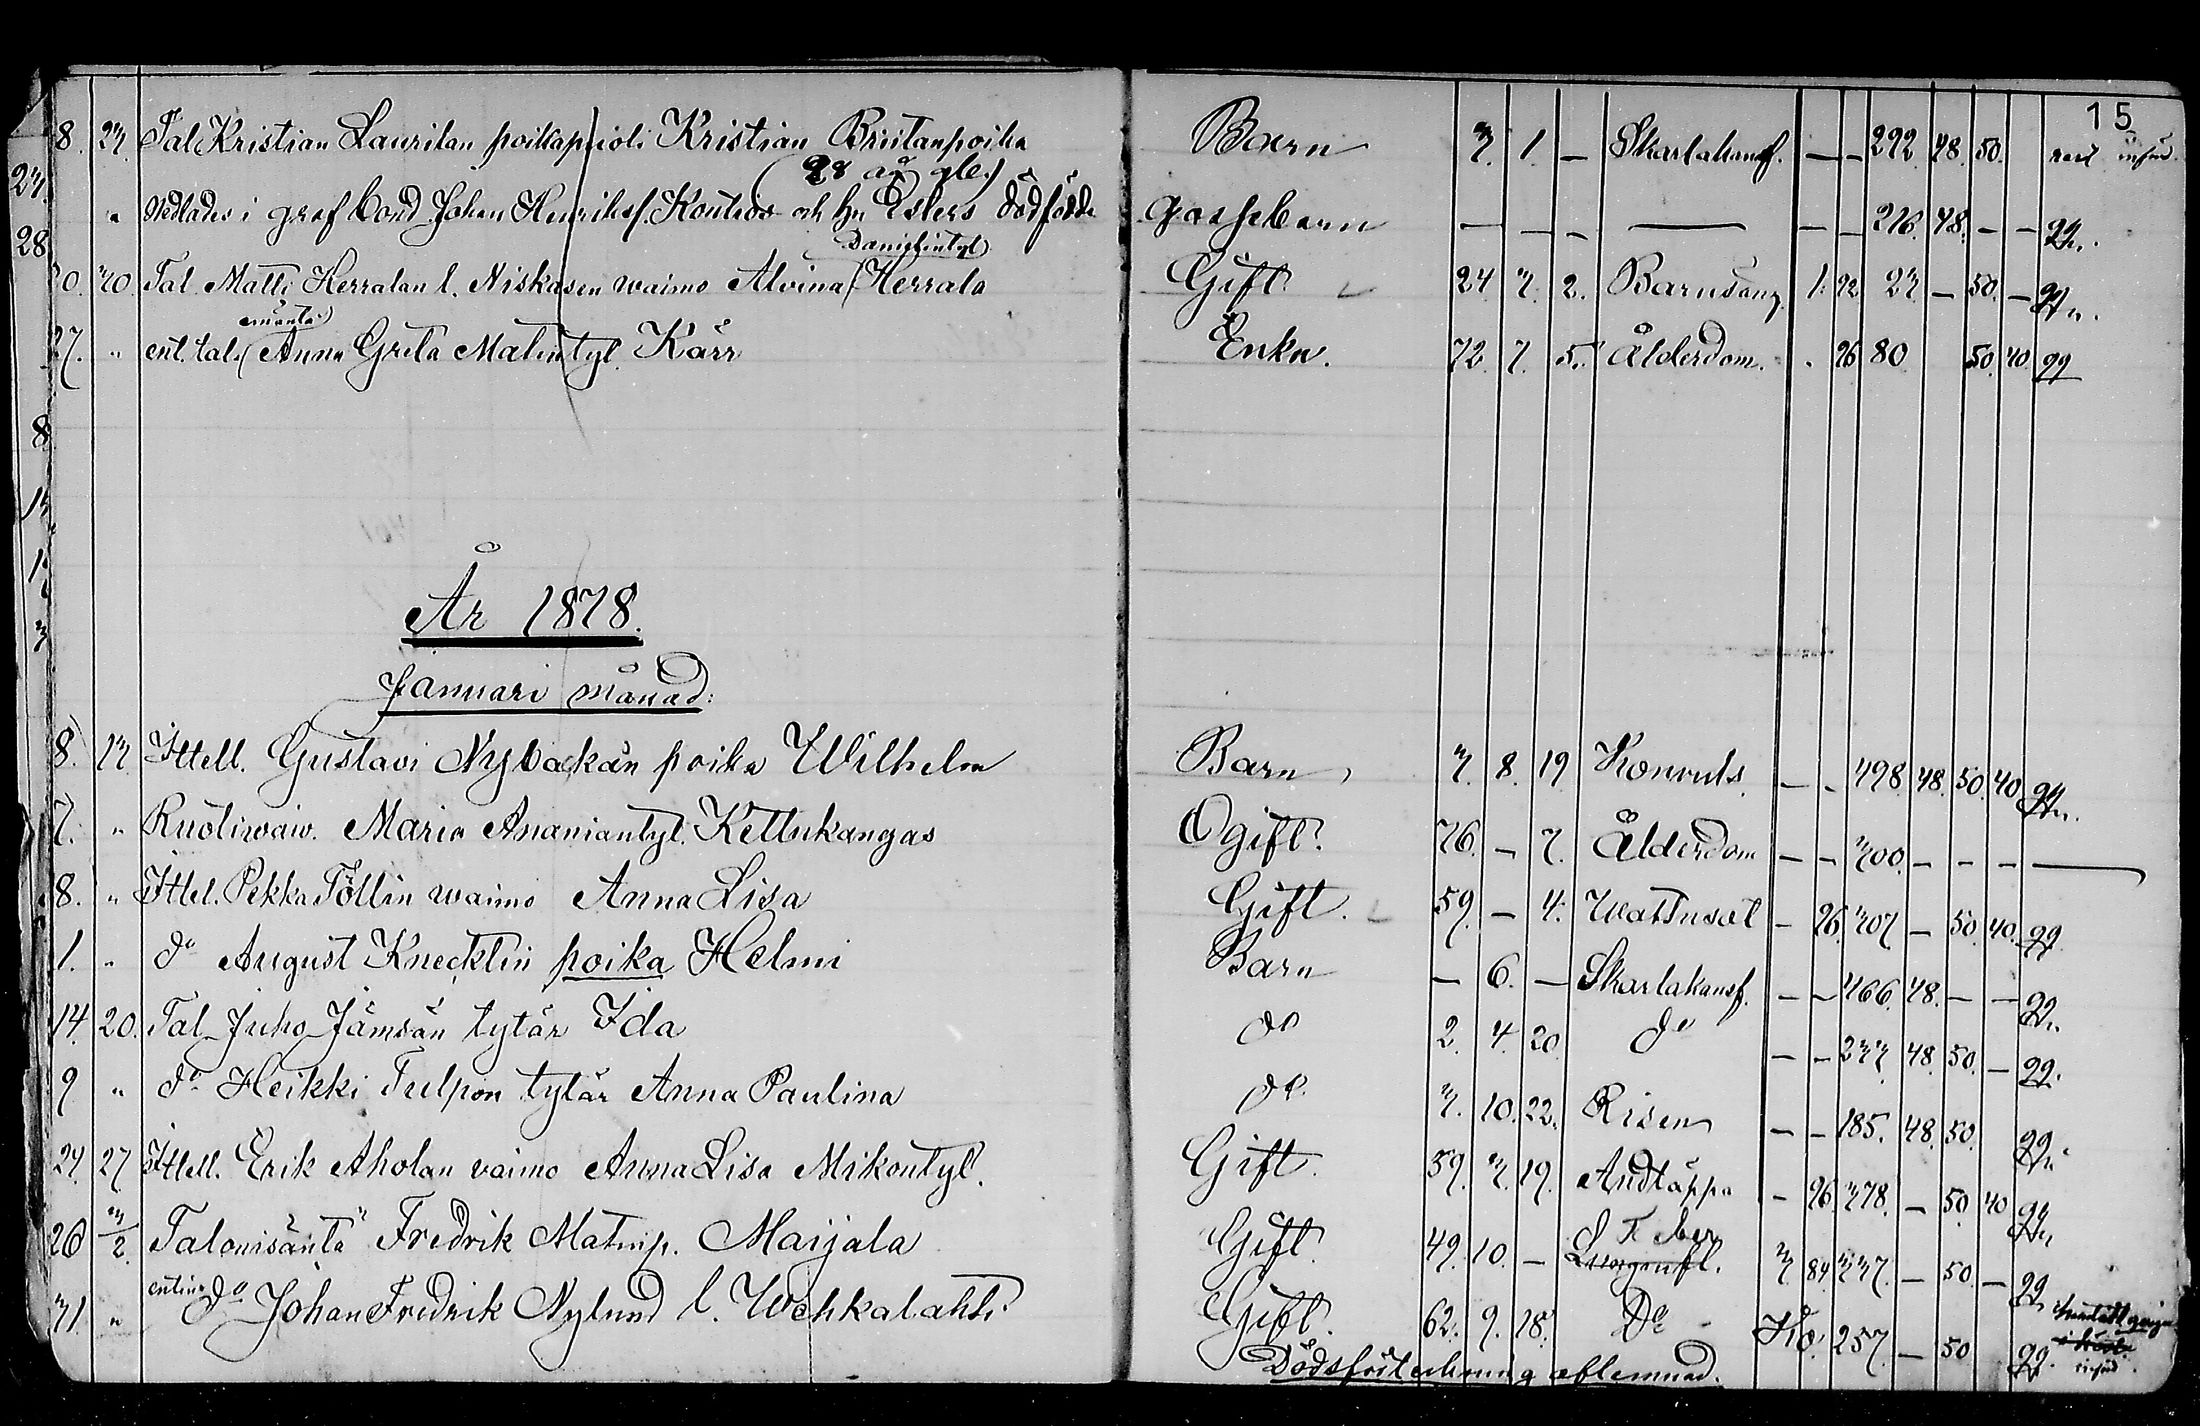 15
8. 23. Tal. Kristian Laurilan poikapuoli Kristian Briitanpoika Barn 3. 1. — Skarlakansf. — — 292 48. 50.
(28 år gle.)
" Nedlades i graf bond. Johan Henriksf. Kontios och hu Esters dödfödde gossebarn — — — — — — 216. 48. — —
Danielintyt.
30. Tal. Matti Herralan l. Niskasen waimo Alvina Herrala Gift 24 3. 2. Barnsäng 1. 92 23 — 50. —
emäntä
27. " ent. tal. Anna Greta Matintyt. Kärr Enka. 72. 7. 5. Ålderdom. . 96 80 50. 40
År 1878.
Januari månad:
8. 13. Ittell. Gustavi Nybackan poika Wilhelm Barn 3. 8. 19 Konvuls. — — 398 48. 50. 40
7. " Ruotiwaiv. Maria Ananiantyt. Kettukangas Ogift. 76. — 7. Ålderdom — — 300. — — —
8. " Ittel. Pekka Töllin waimo Anna Lisa Gift. 59. — 4. Wattusot — 96. 307 — 50. 40.
1. " do August Knecktin poika Helmi Barn — 6. — Skarlakansf. — — 466. 48. — —
14. 20. Tal. Juho Jämsän tytär Ida do 2. 4. 20 do — — 233 48. 50. —
9 " do Heikki Tulpon tytär Anna Paulina do. 3. 10. 22. Risen — — 185. 48. 50.
24. 27 Ittell. Erik Aholan vaimo Anna Lisa Mikontyt. Gift. 59. 3. 19. Andtäppa — 96 378. — 50. 40
26 3/2. Talonisäntä Fredrik Matinp. Maijala Gift 49. 10. — Lungenfl. 3 84 337. — 50. —
31. " entinen do Johan Fredrik Nylund l. Wehkalahti. Gift. 62. 9. 18. Do 257. — 50
Dödsförteckning aflemnad.